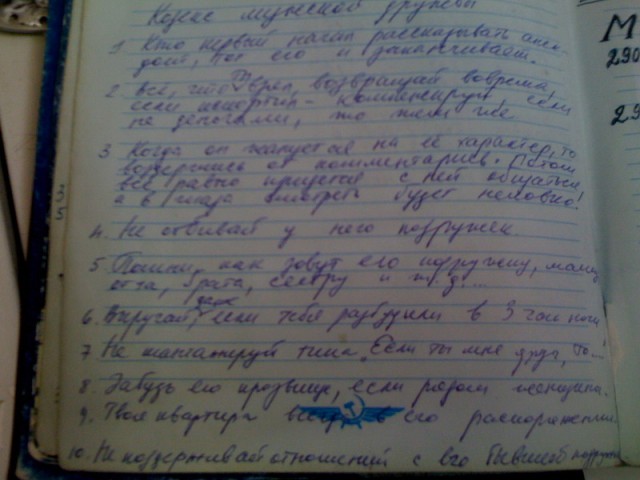 Кодекс мужской дружбы
1 Кто первый начал рассказывать анек-
дот, тот его и заканчивает.
2 Всё, что ты брал, возвращай вовремя,
если испортил - компенсируй, если
не деньгами, то
3 Когда он жалуется на её характер, то
воздержись от комментариев. Потом
всё равно придётся с ней общаться,
а в глаза смотреть будет неловко!
4. Не отбивай у него подружек.
5 Помни, как зовут его подружку, маму,
отца, брата, сестру и т.д....
6. Выручай, даже если тебя разбудили в 3 часа ночи
7 Не шантажируй типа "Если ты мне друг, то..."
8. Забудь его прозвище, если рядом женщина.
9. Твоя квартира всегда в его распоряжении
10. Не поддерживай отношений с его бывшей подружкой
М
290
29